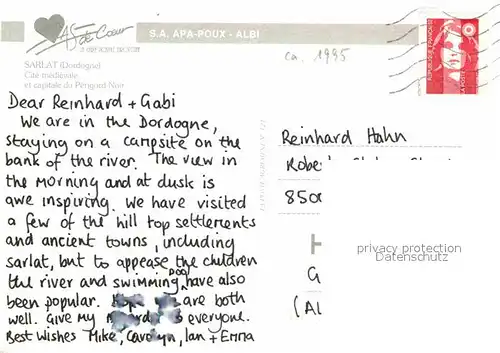 As de Cœur
S.A. APA-POUX - ALBI
SARLAT (Dordogne)
Cité médiévale
et capitale du Périgord Noir
ca. 1995
REPUBLIQUE FRANÇAISE
LA POSTE
Dear Reinhard + Gabi
We are in the Dordogne,
staying on a campsite on the
bank of the river. The view in
the morning and at dusk is
awe inspiring. We have visited
a few of the hill top settlements
and ancient towns, including
sarlat, but to appease the children
the river and swimming pool have also
been popular. are both
well. Give my to everyone.
Best Wishes Mike, Carolyn, Ian + Emma
Reinhard Hahn
Robert
8500
H
G
(Al
privacy protection
Datenschutz